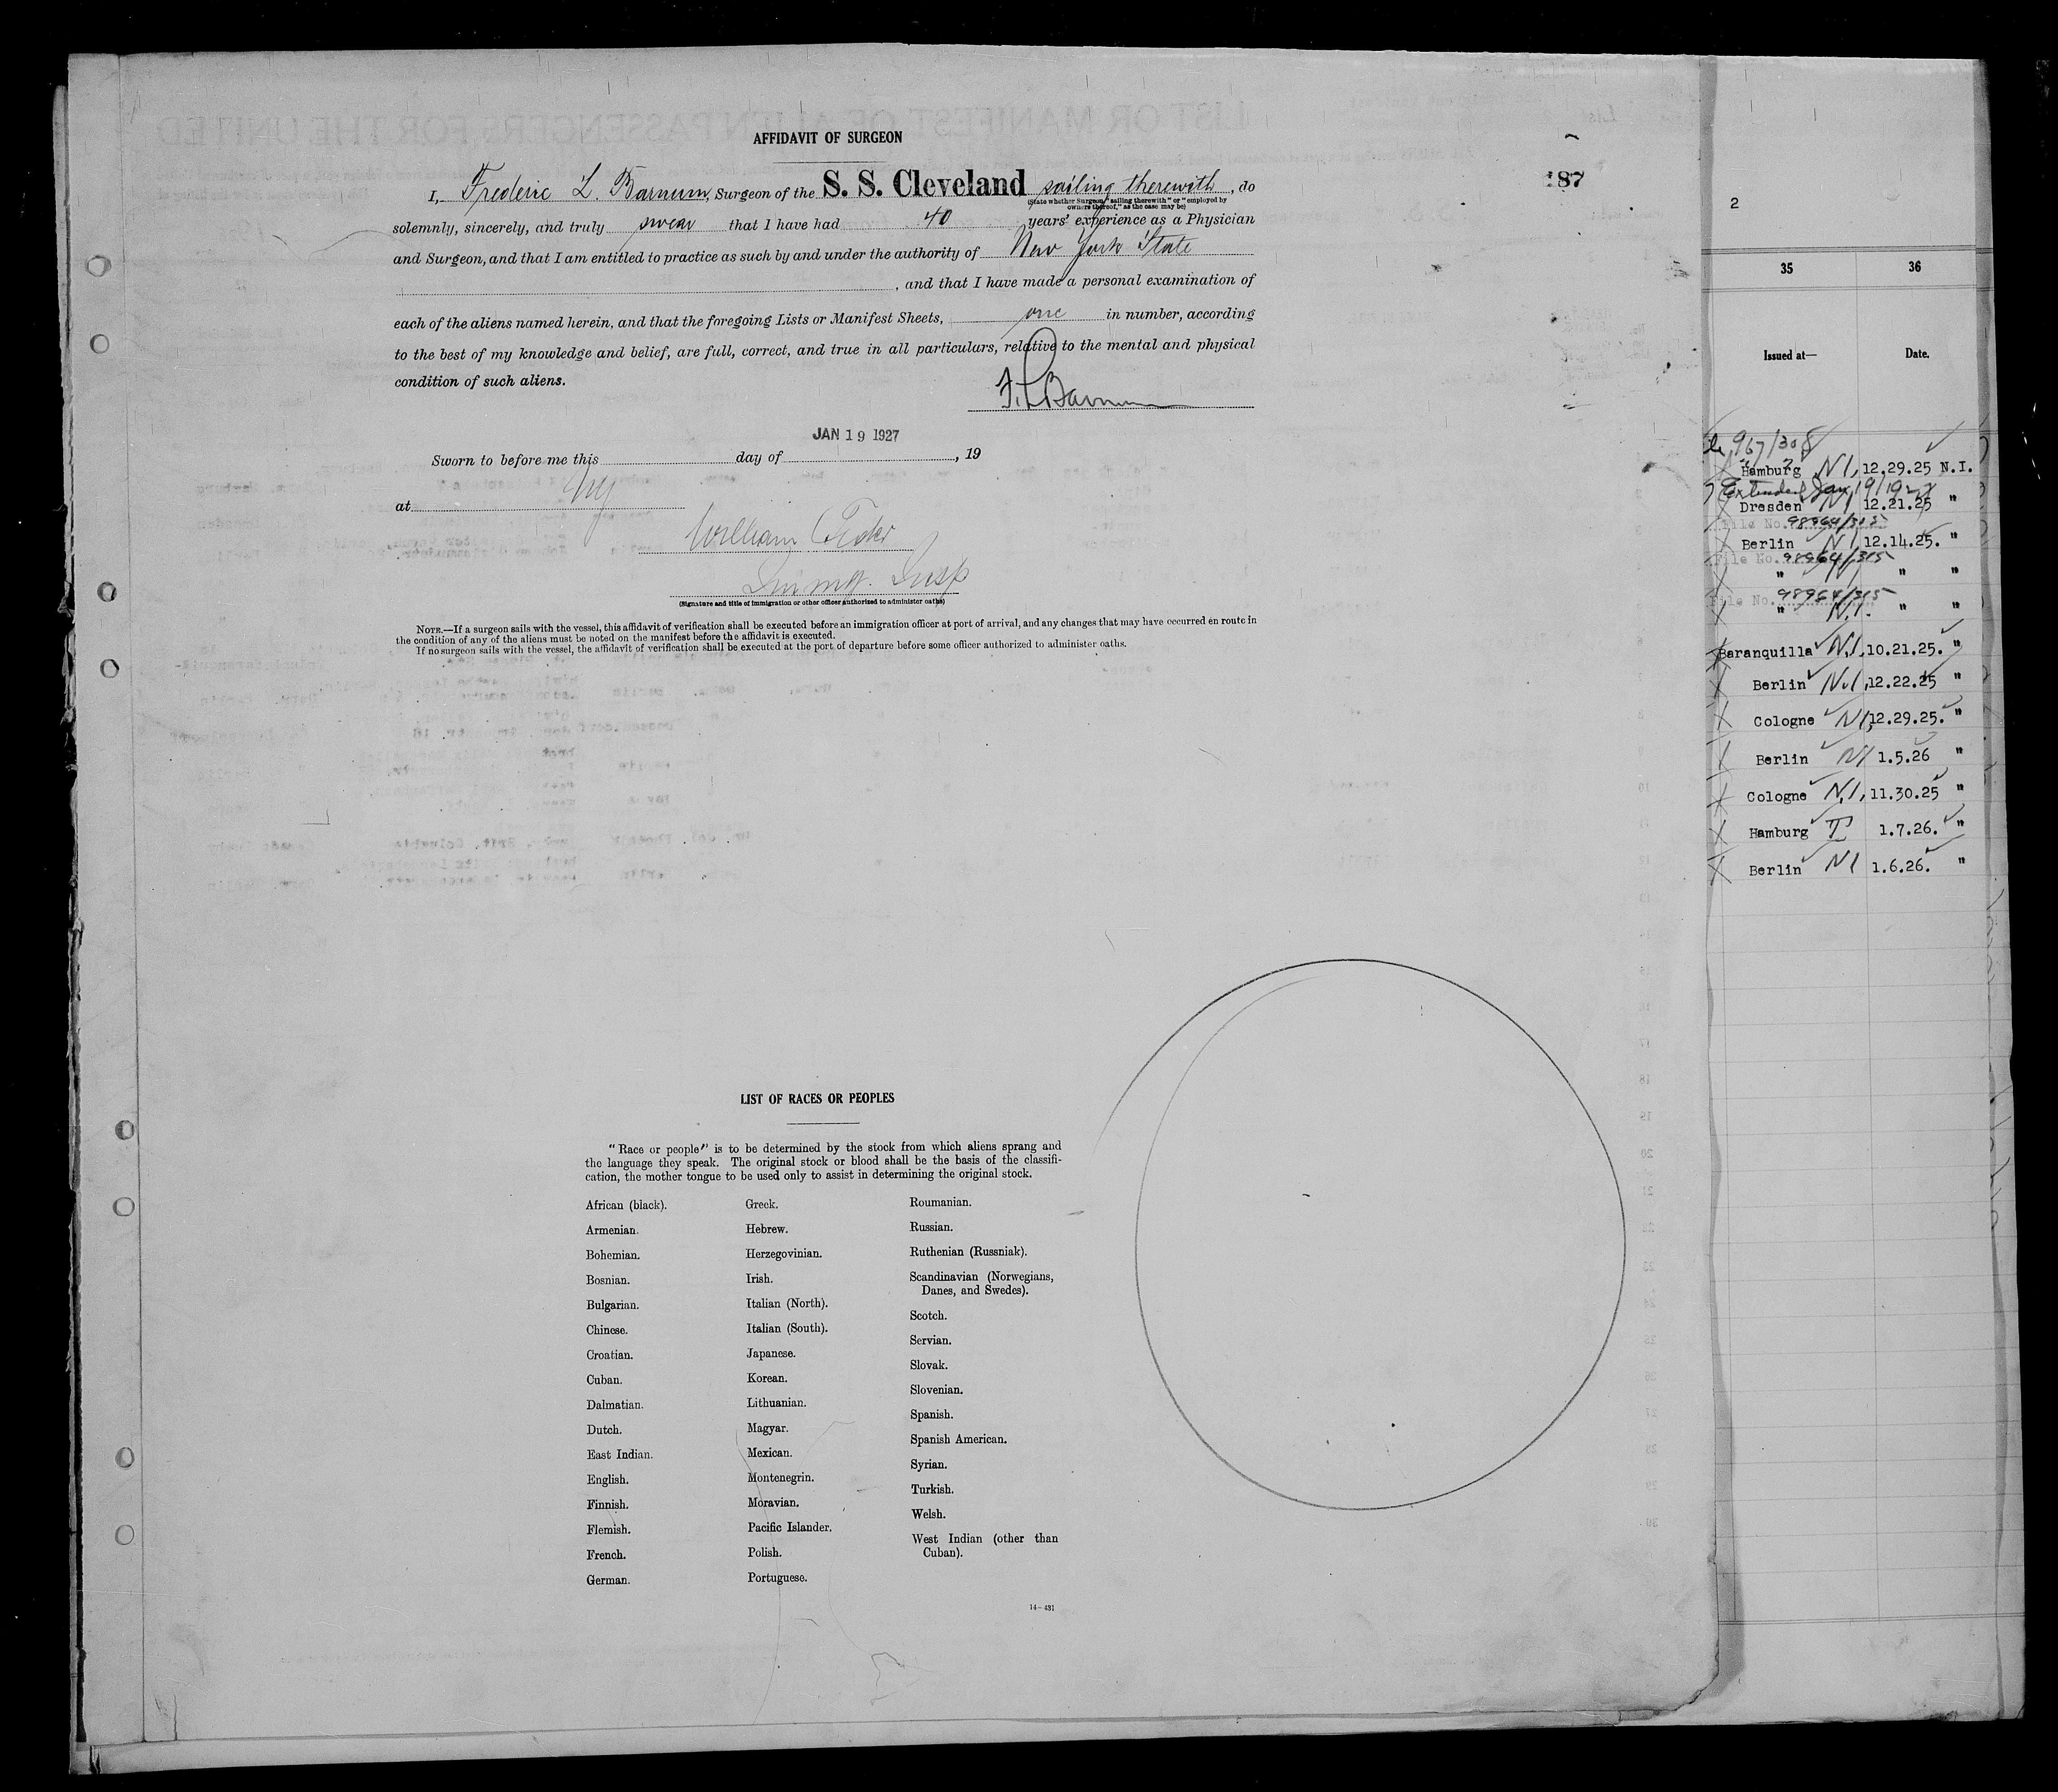 AFFIDAVIT OF SURGEON
187
I, Frederic L. Barnum, Surgeon of the S. S. Cleveland sailing therewith, do
(State whether Surgeon "sailing therewith" or "employed by
owners thereof," as the case may be)
solemnly, sincerely, and truly swear that I have had 40 years' experience as a Physician
and Surgeon, and that I am entitled to practice as such by and under the authority of New York State
, and that I have made a personal examination of
each of the aliens named herein, and that the foregoing Lists or Manifest Sheets, one in number, according
to the best of my knowledge and belief, are full, correct, and true in all particulars, relative to the mental and physical
condition of such aliens.
F. L. Barnum
JAN 19 1927
Sworn to before me this day of , 19
at NY
William
Immgr. Insp
(Signature and title of immigration or other officer authorized to administer oaths)
NOTE.—If a surgeon sails with the vessel, this affidavit of verification shall be executed before an immigration officer at port of arrival, and any changes that may have occurred en route in
the condition of any of the aliens must be noted on the manifest before the affidavit is executed.
If no surgeon sails with the vessel, the affidavit of verification shall be executed at the port of departure before some officer authorized to administer oaths.
LIST OF RACES OR PEOPLES
"Race or people" is to be determined by the stock from which aliens sprang and
the language they speak. The original stock or blood shall be the basis of the classifi-
cation, the mother tongue to be used only to assist in determining the original stock.
African (black).
Armenian.
Bohemian.
Bosnian.
Bulgarian.
Chinese.
Croatian.
Cuban.
Dalmatian.
Dutch.
East Indian.
English.
Finnish.
Flemish.
French.
German.
Greek.
Hebrew.
Herzegovinian.
Irish.
Italian (North).
Italian (South).
Japanese.
Korean.
Lithuanian.
Magyar.
Mexican.
Montenegrin.
Moravian.
Pacific Islander.
Polish.
Portuguese.
Roumanian.
Russian.
Ruthenian (Russniak).
Scandinavian (Norwegians,
Danes, and Swedes).
Scotch.
Servian.
Slovak.
Slovenian.
Spanish.
Spanish American.
Syrian.
Turkish.
Welsh.
West Indian (other than
Cuban).
14-431
2
35 36
Issued at— Date.
967/308
Hamburg N I, 12.29.25 N.I.
Extended Jan 19/192
Dresden N I 12.21.25 "
File No. 98964/315
Berlin N I, 12.14.25. "
File No. 98964/315
" N I " "
File No. 98964/315
" N.I. " "
Baranquilla N.I. 10.21.25. "
Berlin N.I, 12.22.25 "
Cologne N I, 12.29.25. "
Berlin N I 1.5.26 "
Cologne N.I, 11.30.25 "
Hamburg T 1.7.26. "
Berlin N I 1.6.26. "